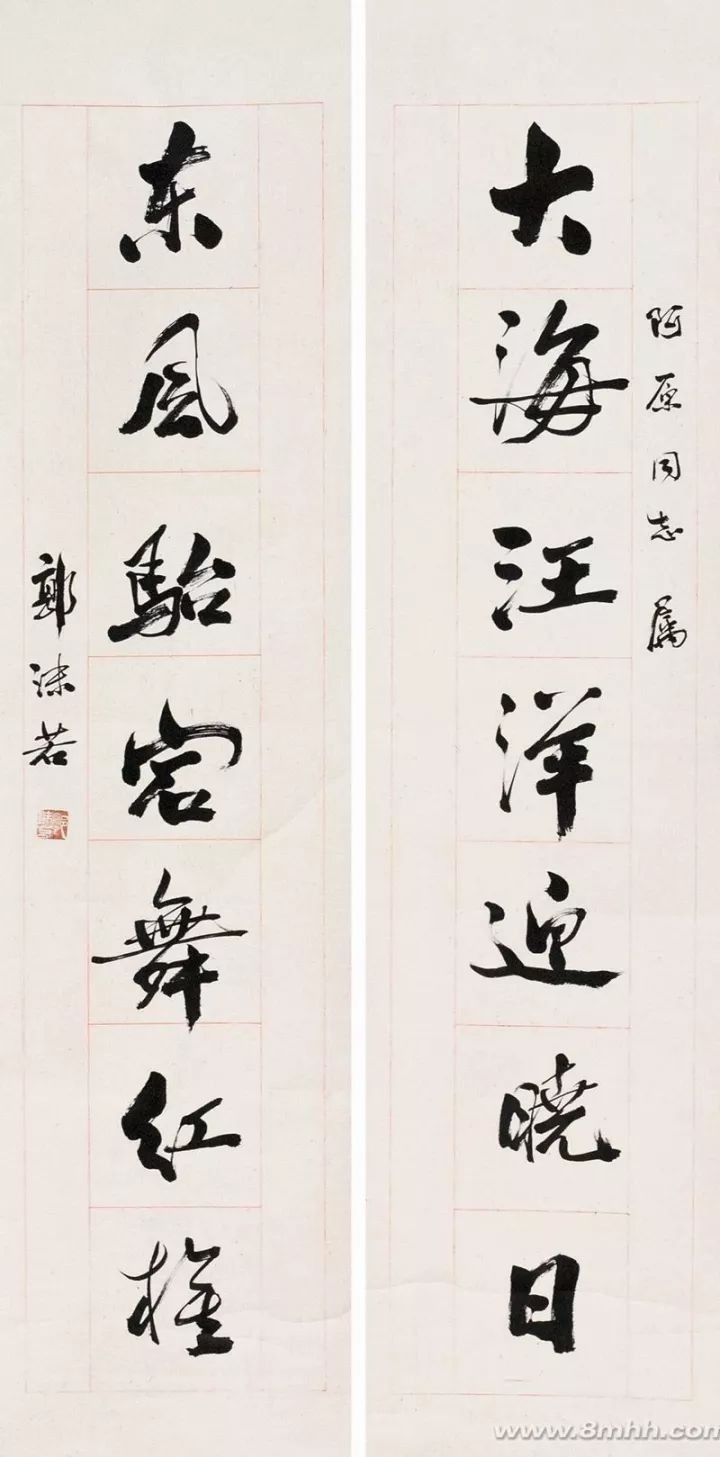 阿原同志 属
大海汪洋迎晓日
东风骀宕舞红旌
郭沫若
www.8mhh.com